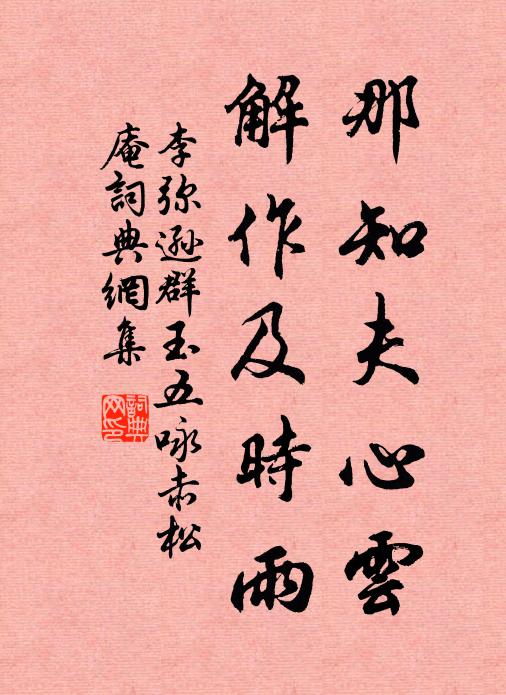 那知夫心雲
解作及時雨
李弥遜群玉五咏赤松
庵詞典網集
詞典
网印